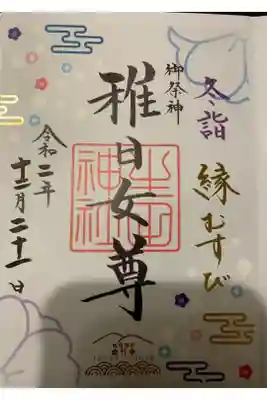 冬詣
縁むすび
御祭神
稚日女尊
生田
神社
令和二年
十二月二十一日